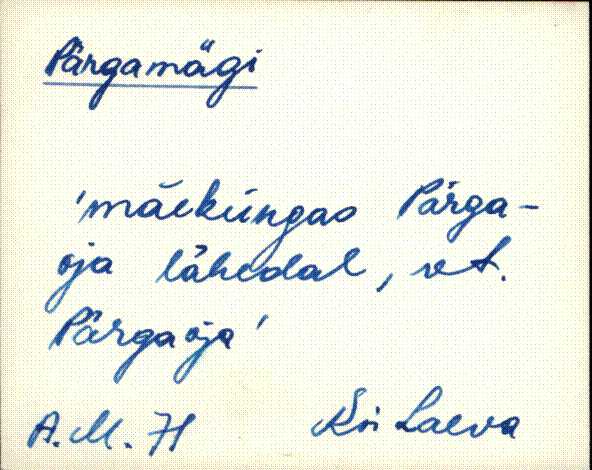 Pärgamägi
'mäeküngas Pärga-
oja lähedal, vt.
Pärgaoja'
A.M. 71 Ksi Laeva